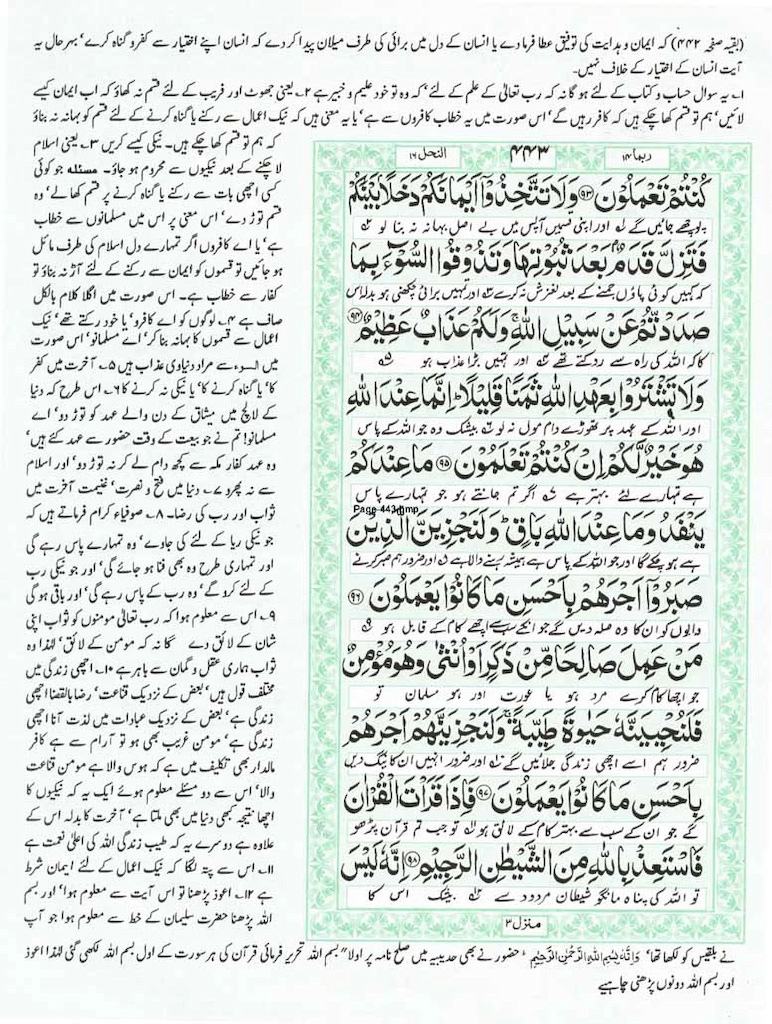 (بقیہ صفحہ ۴۴۲) کہ ایمان و ہدایت کی توفیق عطا فرما دے یا انسان کے دل میں برائی کی طرف میلان پیدا کر دے کہ انسان اپنے اختیار سے کفر و گناہ کرے‘ بہرحال یہ
آیت انسان کے اختیار کے خلاف نہیں۔
۱۔ یہ سوال حساب و کتاب کے لئے ہو گا نہ کہ رب تعالیٰ کے علم کے لئے‘ کہ وہ تو خود علیم و خبیر ہے ۲۔ یعنی جھوٹ اور فریب کے لئے قسم نہ کھاؤ کہ اب ایمان کیسے
لائیں‘ ہم تو قسم کھا چکے ہیں کہ کافر رہیں گے‘ اس صورت میں یہ خطاب کافروں سے ہے‘ یا یہ معنی ہیں کہ نیک اعمال سے رکنے یا گناہ کرنے کے لئے قسم کو بہانہ نہ بناؤ
کہ ہم تو قسم کھا چکے ہیں۔ نیکی کیسے کریں ۳۔ یعنی اسلام
لا چکنے کے بعد نیکیوں سے محروم ہو جاؤ۔ مسئلہ جو کوئی
کسی اچھی بات سے رکنے یا گناہ کرنے پر قسم کھا لے‘ وہ
قسم توڑ دے‘ اس معنی پر اس میں مسلمانوں سے خطاب
ہے‘ یا اے کافروں اگر تمہارے دل اسلام کی طرف مائل
ہو جائیں تو قسموں کو ایمان سے رکنے کے لئے آڑ نہ بناؤ تو
کفار سے خطاب ہے۔ اس صورت میں اگلا کلام بالکل
صاف ہے ۴۔ لوگوں کو اے کافرو‘ یا خود رکتے تھے‘ نیک
اعمال سے قسموں کا بہانہ بنا کر‘ اے مسلمانو‘ اس صورت
میں السوء سے مراد دنیاوی عذاب ہیں ۵۔ آخرت میں کفر
کا‘ یا گناہ کرنے کا‘ یا نیکی نہ کرنے کا ۶۔ اس طرح کہ دنیا
کے لالچ میں میثاق کے دن والے عہد کو توڑ دو‘ اے
مسلمانو! تم نے جو بیعت کے وقت حضور سے عہد کئے ہیں‘
وہ عہد کفار مکہ سے کچھ دام لے کر نہ توڑ دو‘ اور اسلام
سے نہ پھرو ۷۔ دنیا میں فتح و نصرت‘ غنیمت آخرت میں
ثواب اور رب کی رضا۔ ۸۔ صوفیاء کرام فرماتے ہیں کہ
جو نیکی ریا کے لئے کی جاوے‘ وہ تمہارے پاس رہے گی
اور تمہاری طرح وہ بھی فنا ہو جائے گی‘ اور جو نیکی رب
کے لئے کرو گے‘ وہ رب کے پاس رہے گی‘ اور باقی ہو گی
۹۔ اس سے معلوم ہوا کہ رب تعالیٰ مومنوں کو ثواب اپنی
شان کے لائق دے گا نہ کہ مومن کے لائق‘ لہٰذا وہ
ثواب ہماری عقل و گمان سے باہر ہے ۱۰۔ اچھی زندگی میں
مختلف قول ہیں‘ بعض کے نزدیک قناعت‘ رضا بالقضا اچھی
زندگی ہے‘ بعض کے نزدیک عبادات میں لذت آنا اچھی
زندگی ہے‘ مومن غریب بھی ہو تو آرام سے ہے کافر
مالدار بھی تکلیف میں ہے کہ ہوس والا ہے مومن قناعت
والا‘ اس سے دو مسئلے معلوم ہوئے ایک یہ کہ نیکیوں کا
اچھا نتیجہ کبھی دنیا میں بھی ملتا ہے‘ آخرت کا بدلہ اس کے
علاوہ ہے دوسرے یہ کہ طیب زندگی اللہ کی اعلیٰ نعمت ہے
۱۱۔ اس سے پتہ لگا کہ نیک اعمال کے لئے ایمان شرط
ہے ۱۲۔ اعوذ پڑھنا تو اس آیت سے معلوم ہوا‘ اور بسم
اللہ پڑھنا حضرت سلیمان کے خط سے معلوم ہوا جو آپ
ربما ۱۴ ۴۴۳ النحل ۱۶
كُنْتُمْ تَعْمَلُوْنَ ﴿۹۳﴾ وَلَا تَتَّخِذُوْۤا اَيْمَانَكُمْ دَخَلًۢا بَيْنَكُمْ
پوچھے جائیں گے ۱ اور اپنی قسمیں آپس میں بے اصل بہانہ نہ بنا لو ۲
فَتَزِلَّ قَدَمٌۢ بَعْدَ ثُبُوْتِهَا وَتَذُوْقُوا السُّوْٓءَ بِمَا
کہ کہیں کوئی پاؤں جمنے کے بعد لغزش نہ کرے ۳ اور تمہیں برائی چکھنی ہو بدلہ اس
صَدَدْتُّمْ عَنْ سَبِيْلِ اللّٰهِ ۚ وَلَكُمْ عَذَابٌ عَظِيْمٌ ﴿۹۴﴾
کا کہ اللہ کی راہ سے روکتے تھے ۴ اور تمہیں بڑا عذاب ہو ۵
وَلَا تَشْتَرُوْا بِعَهْدِ اللّٰهِ ثَمَنًا قَلِيْلًا ؕ اِنَّمَا عِنْدَ اللّٰهِ
اور اللہ کے عہد پر تھوڑے دام مول نہ لو ۶ بیشک وہ جو اللہ کے پاس
هُوَ خَيْرٌ لَّكُمْ اِنْ كُنْتُمْ تَعْلَمُوْنَ ﴿۹۵﴾ مَا عِنْدَكُمْ
ہے تمہارے لئے بہتر ہے ۷ اگر تم جانتے ہو جو تمہارے پاس
Page-443.bmp
يَنْفَدُ وَمَا عِنْدَ اللّٰهِ بَاقٍ ؕ وَلَنَجْزِيَنَّ الَّذِيْنَ
ہے ہو چکے گا اور جو اللہ کے پاس ہے ہمیشہ رہنے والا ہے ۸ اور ضرور ہم صبر کرنے
صَبَرُوْۤا اَجْرَهُمْ بِاَحْسَنِ مَا كَانُوْا يَعْمَلُوْنَ ﴿۹۶﴾
والوں کو ان کا وہ صلہ دیں گے جو انکے سب سے اچھے کام کے قابل ہو ۹
مَنْ عَمِلَ صَالِحًا مِّنْ ذَكَرٍ اَوْ اُنْثٰى وَهُوَ مُؤْمِنٌ
جو اچھا کام کرے مرد ہو یا عورت اور ہو مسلمان تو
فَلَنُحْيِيَنَّهٗ حَيٰوةً طَيِّبَةً ۚ وَلَنَجْزِيَنَّهُمْ اَجْرَهُمْ
ضرور ہم اسے اچھی زندگی جلائیں گے ۱۰ اور ضرور انہیں ان کا نیگ دیں
بِاَحْسَنِ مَا كَانُوْا يَعْمَلُوْنَ ﴿۹۷﴾ فَاِذَا قَرَاْتَ الْقُرْاٰنَ
گے جو ان کے سب سے بہتر کام کے لائق ہو ۱۱ تو جب تم قرآن پڑھو
فَاسْتَعِذْ بِاللّٰهِ مِنَ الشَّيْطٰنِ الرَّجِيْمِ ﴿۹۸﴾ اِنَّهٗ لَيْسَ
تو اللہ کی پناہ مانگو شیطان مردود سے ۱۲ بیشک اس کا
منزل ۳
نے بلقیس کو لکھا تھا‘ وَاِنَّهٗ بِسْمِ اللّٰهِ الرَّحْمٰنِ الرَّحِيْمِ ‘ حضور نے بھی حدیبیہ میں صلح نامہ پر اولا" بسم اللہ تحریر فرمائی قرآن کی ہر سورت کے اول بسم اللہ لکھی گئی لہٰذا اعوذ
اور بسم اللہ دونوں پڑھنی چاہیے